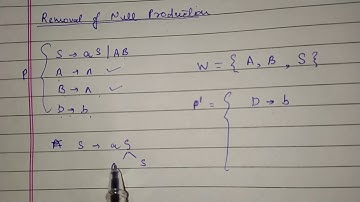 Removal of Null Production
P { S → aS | AB
A → ʌ ✓
B → ʌ ✓
D → b
W = { A, B, S }
P' = { D → b
S → aS
S